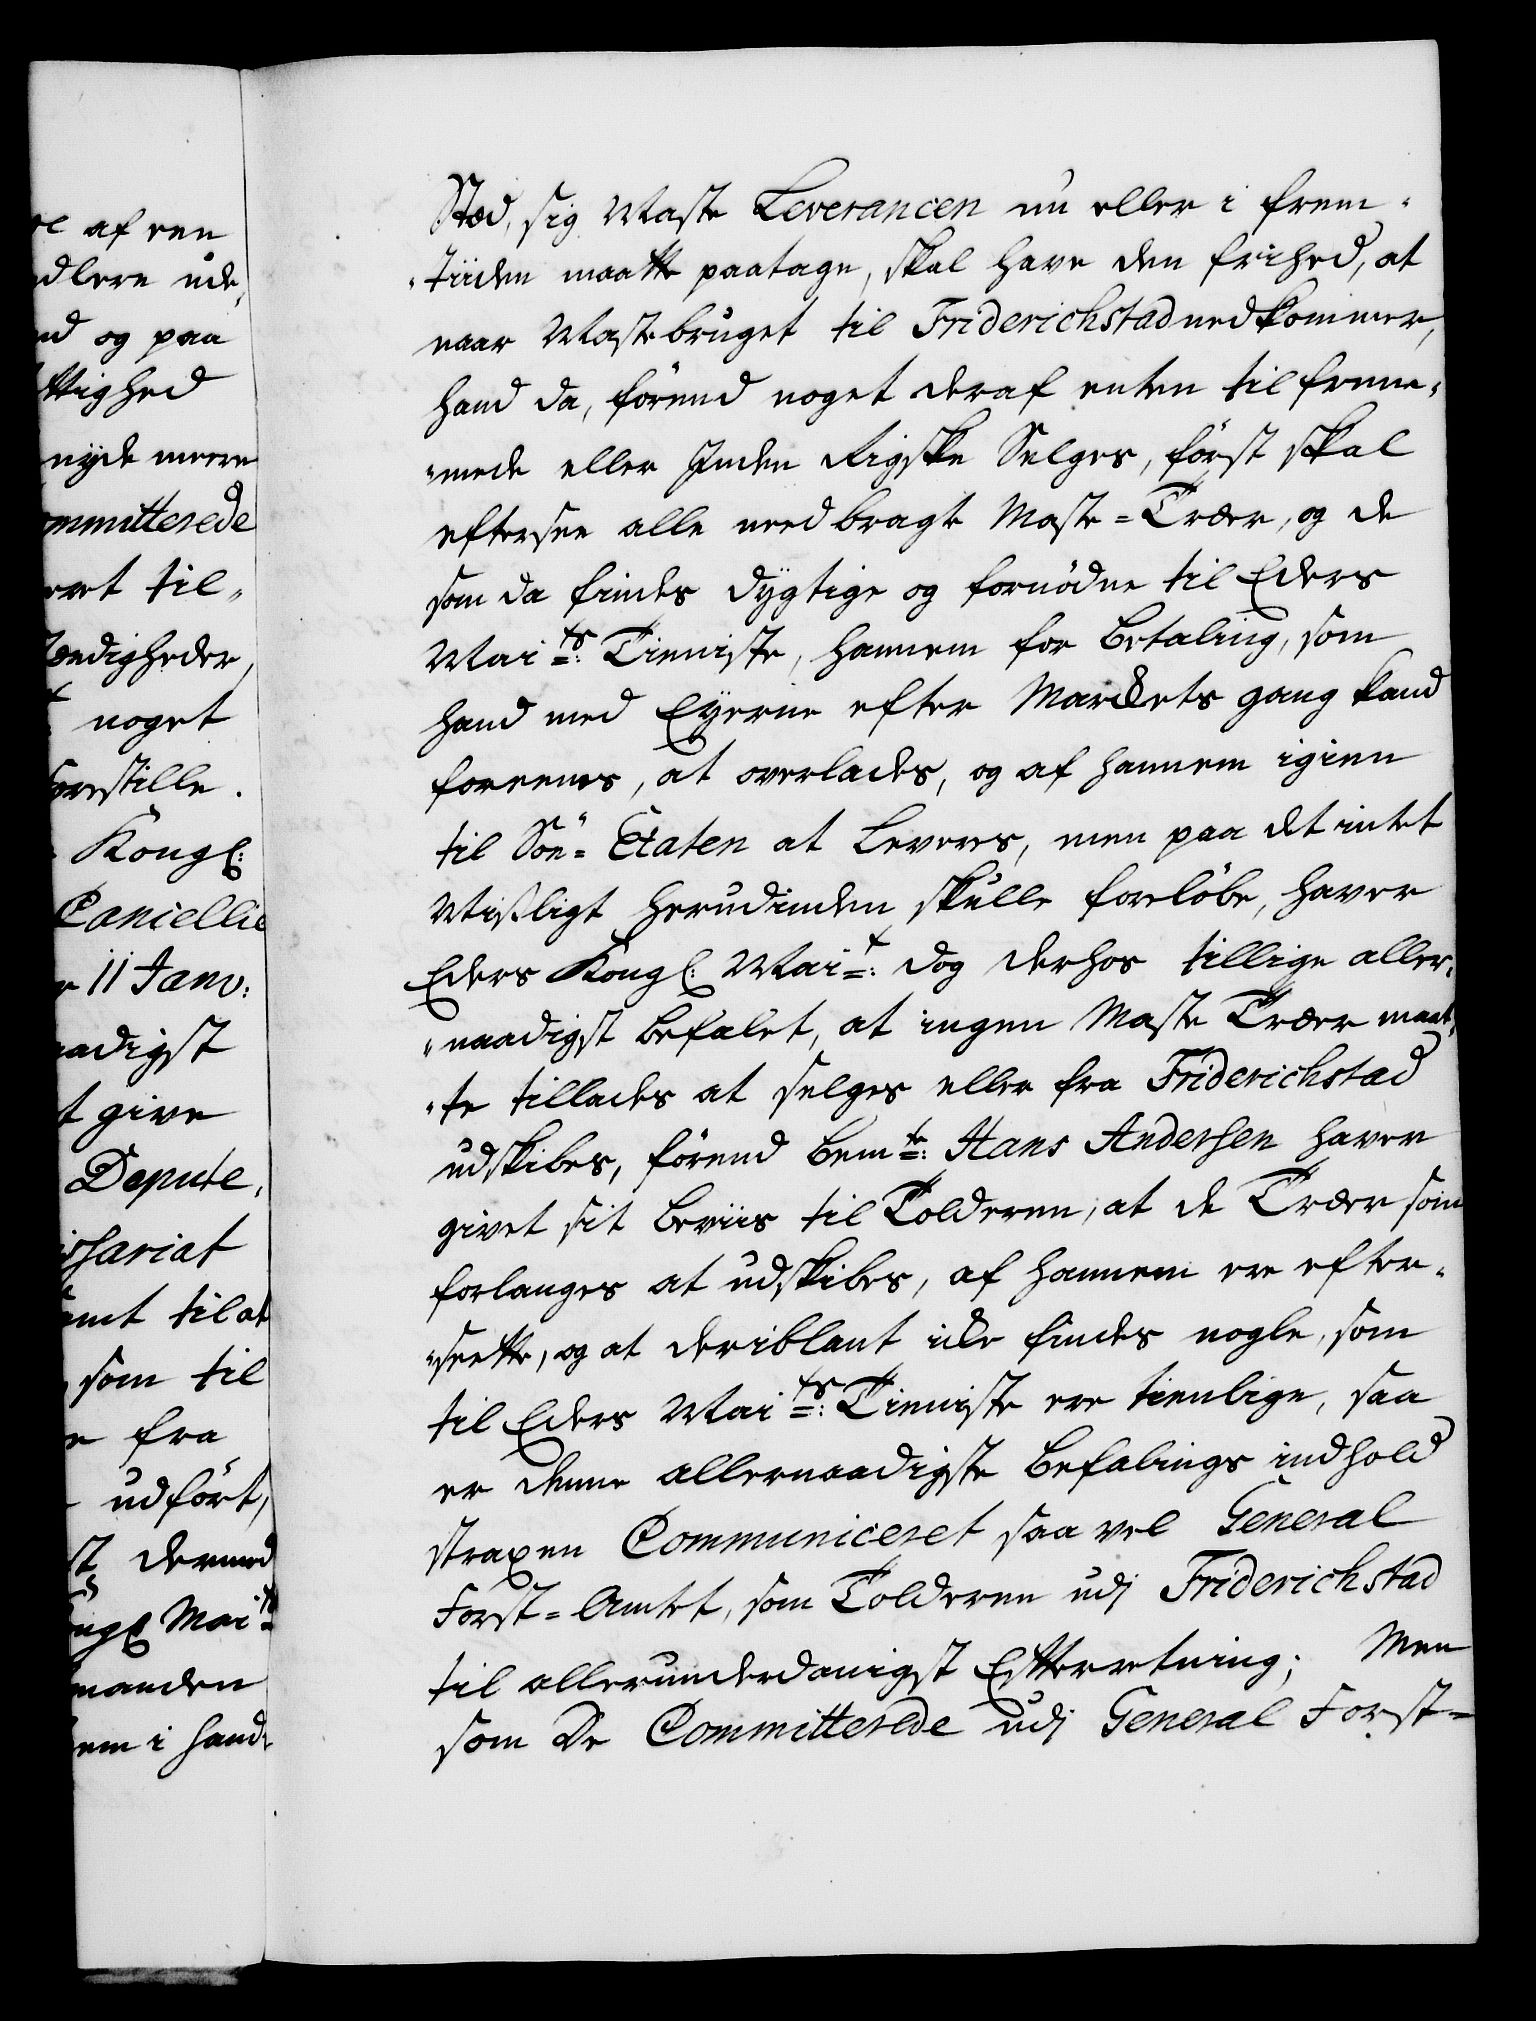 re af een
dlere ude,
nd og paa
ttighed
nÿde meere
ommitterede
eret til„
tændigheder,
noget
forestille.
Kongl:
Cancellie
11 Janv:
naadigst
t give
Depute„
issariat
amt til at
, som til
e fra
udført,
st dermed
Kongl Mai:ts
manden
hem i hand„
Stæd, sig Maste Leverancen nu eller i frem„
„tiiden maatte paatage, skal have den frihed, at
naar Mastebruget til Friderichstad nedkommer,
hand da, förend noget deraf enten til frem„
„mede eller Inden Rigske Selges, först skal
eftersee alle nedbragte Maste=Træer, og de
som da findes dÿgtige og fornödne til Eders
Mai:ts Tieniste, hannem for Betaling, som
hand med Eÿerne efter Markets gang kand
foreenes, at overlades, og af hannem igien
til Söe=Etaten at Leveres, men paa det intet
Misligt herudinden skulle forelöbe, haver
Eders Kongl: Mai:t dog derhos tillige aller„
„naadigst befalet, at ingen Maste Træer maat„
„te tillades at selges eller fra Friderichstad
udskibes, förend bem:te Hans Andersen haver
givet sit beviis til Tolderen, at de Træer som
forlanges at udskibes, af hannem ere efter„
„seette, og at deriblant icke findes nogle, som
til Eders Mai:ts Tieniste ere tienlige, saa
er denne allernaadigste Befalings indhold
straxen Communiceret saa vel General
Forst=Amtet, som Tolderen udj Friderichstad
til allerunderdanigst Efterretning; Men
som De Committerede udj General Forst=